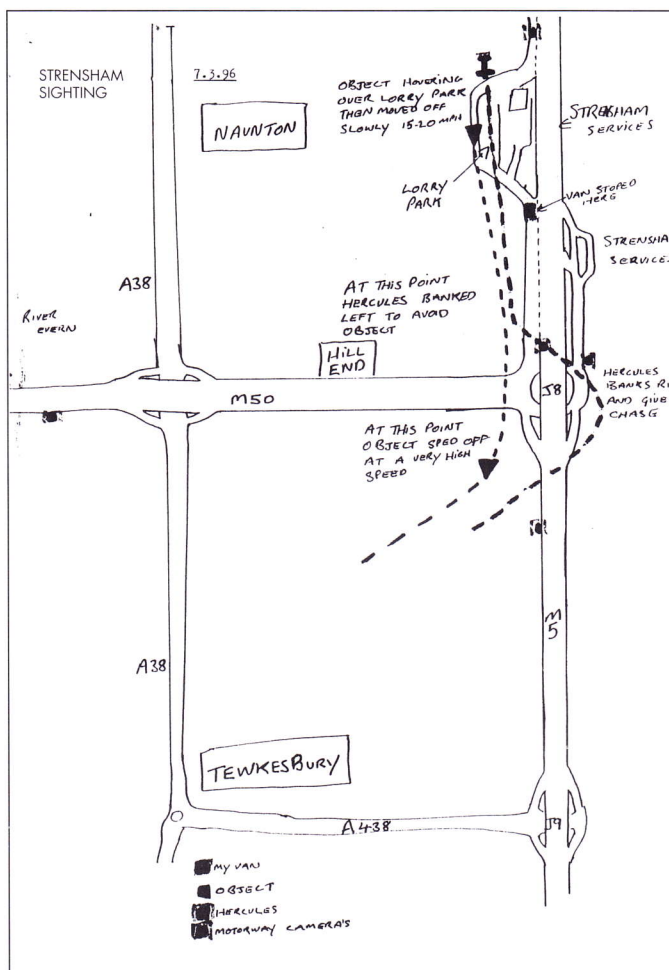 STRENSHAM
SIGHTING
7.3.96
NAUNTON
OBJECT HOVERING
OVER LORRY PARK
THEN MOVED OFF
SLOWLY 15-20 MPH
STRENSHAM
SERVICES
LORRY
PARK
VAN STOPED
HERE
STRENSHA
SERVICE
A38
RIVER
EVERN
AT THIS POINT
HERCULES BANKED
LEFT TO AVOID
OBJECT
HILL
END
M50
J8
HERCULES
BANKS R
AND GIVE
CHASE
AT THIS POINT
OBJECT SPED OFF
AT A VERY HIGH
SPEED
M
5
A38
TEWKESBURY
A438
J9
MY VAN
OBJECT
HERCULES
MOTORWAY CAMERA'S